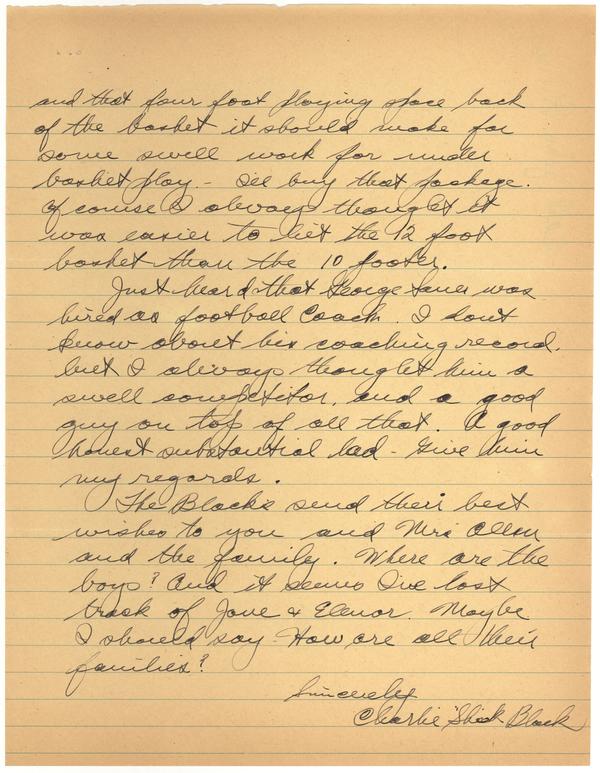 and that four foot playing space back
of the basket it should make for
some swell work for under
basket play - I'll buy that package.
Of course I always thought it
was easier to hit the 12 foot
basket than the 10 footer.
Just heard that George Sauer was
hired as football Coach. I don't
know about his coaching record,
but I always thought him a
swell competitor, and a good
guy on top of all that. A good
honest substantial lad - Give him
my regards.
The Blacks send their best
wishes to you and Mrs Allen
and the family. Where are the
boys? And it seems I've lost
track of Jane & Elenor. Maybe
I should say - How are all their
families?
Sincerely
Charlie "Shick Black